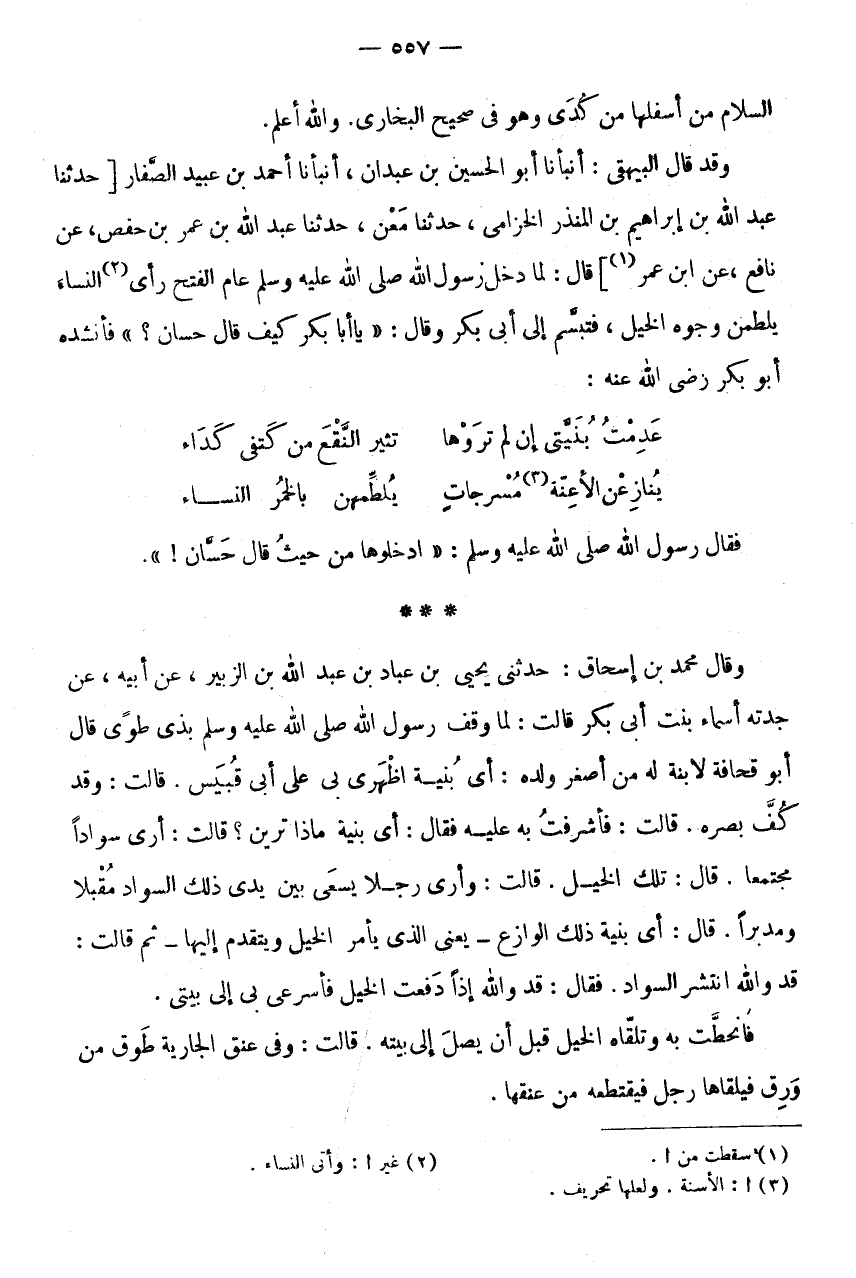 — ٥٥٧ —
السلام من أسفلها من كُدَى وهو فى صحيح البخارى. والله أعلم.
وقد قال البيهقى : أنبأنا أبو الحسين بن عبدان ، أنبأنا أحمد بن عبيد الصَّفار [ حدثنا
عبد الله بن إبراهيم بن المنذر الخزامى ، حدثنا مَعْن ، حدثنا عبد الله بن عمر بن حفص، عن
نافع ،عن ابن عمر(١)] قال : لما دخل رسول الله صلى الله عليه وسلم عام الفتح رأى(٢) النساء
يلطمن وجوه الخيل ، فتبسَّم إلى أبى بكر وقال : « ياأبا بكر كيف قال حسان ؟ » فأنشده
أبو بكر رضى الله عنه :
عَدِمْتُ بُنَيَّتى إن لم تروْها تثير النَّقْعَ من كَتفى كَدَاء
يُنازِعْن الأعِنّة(٣) مُسْرجاتٍ يُلطِّمهن بالخُمُر النســاء
فقال رسول الله صلى الله عليه وسلم : « ادخلوها من حيثُ قال حَسَّان ! ».
* * *
وقال محمد بن إسحاق : حدثنى يحيى بن عباد بن عبد الله بن الزبير ، عن أبيه ، عن
جدته أسماء بنت أبى بكر قالت : لما وقف رسول الله صلى الله عليه وسلم بذى طوًى قال
أبو قحافة لابنة له من أصغر ولده : أى بُنيــة اظْهَرى بى على أبى قُبَيَس . قالت : وقد
كُفَّ بصره . قالت : فأشرفتُ به عليــه فقال : أى بنية ماذا ترين ؟ قالت : أرى سواداً
مجتمعا . قال : تلك الخيــل . قالت : وأرى رجــلا يسعَى بين يدى ذلك السواد مُقْبلا
ومدبراً . قال : أى بنية ذلك الوازع – يعنى الذى يأمر الخيل ويتقدم إليها – ثم قالت :
قد والله انتشر السواد . فقال : قد والله إذاً دَفعت الخيل فأسرعى بى إلى بيتى .
فانحطَّت به وتلقّاه الخيل قبل أن يصلَ إلى بيته . قالت : وفى عنق الجارية طَوق من
وَرِق فيلقاها رجل فيقتطعه من عنقها .
(١) سقطت من ا . (٢) غير ا : وأتى النساء .
(٣) ا : الأسنة . ولعلها تحريف .